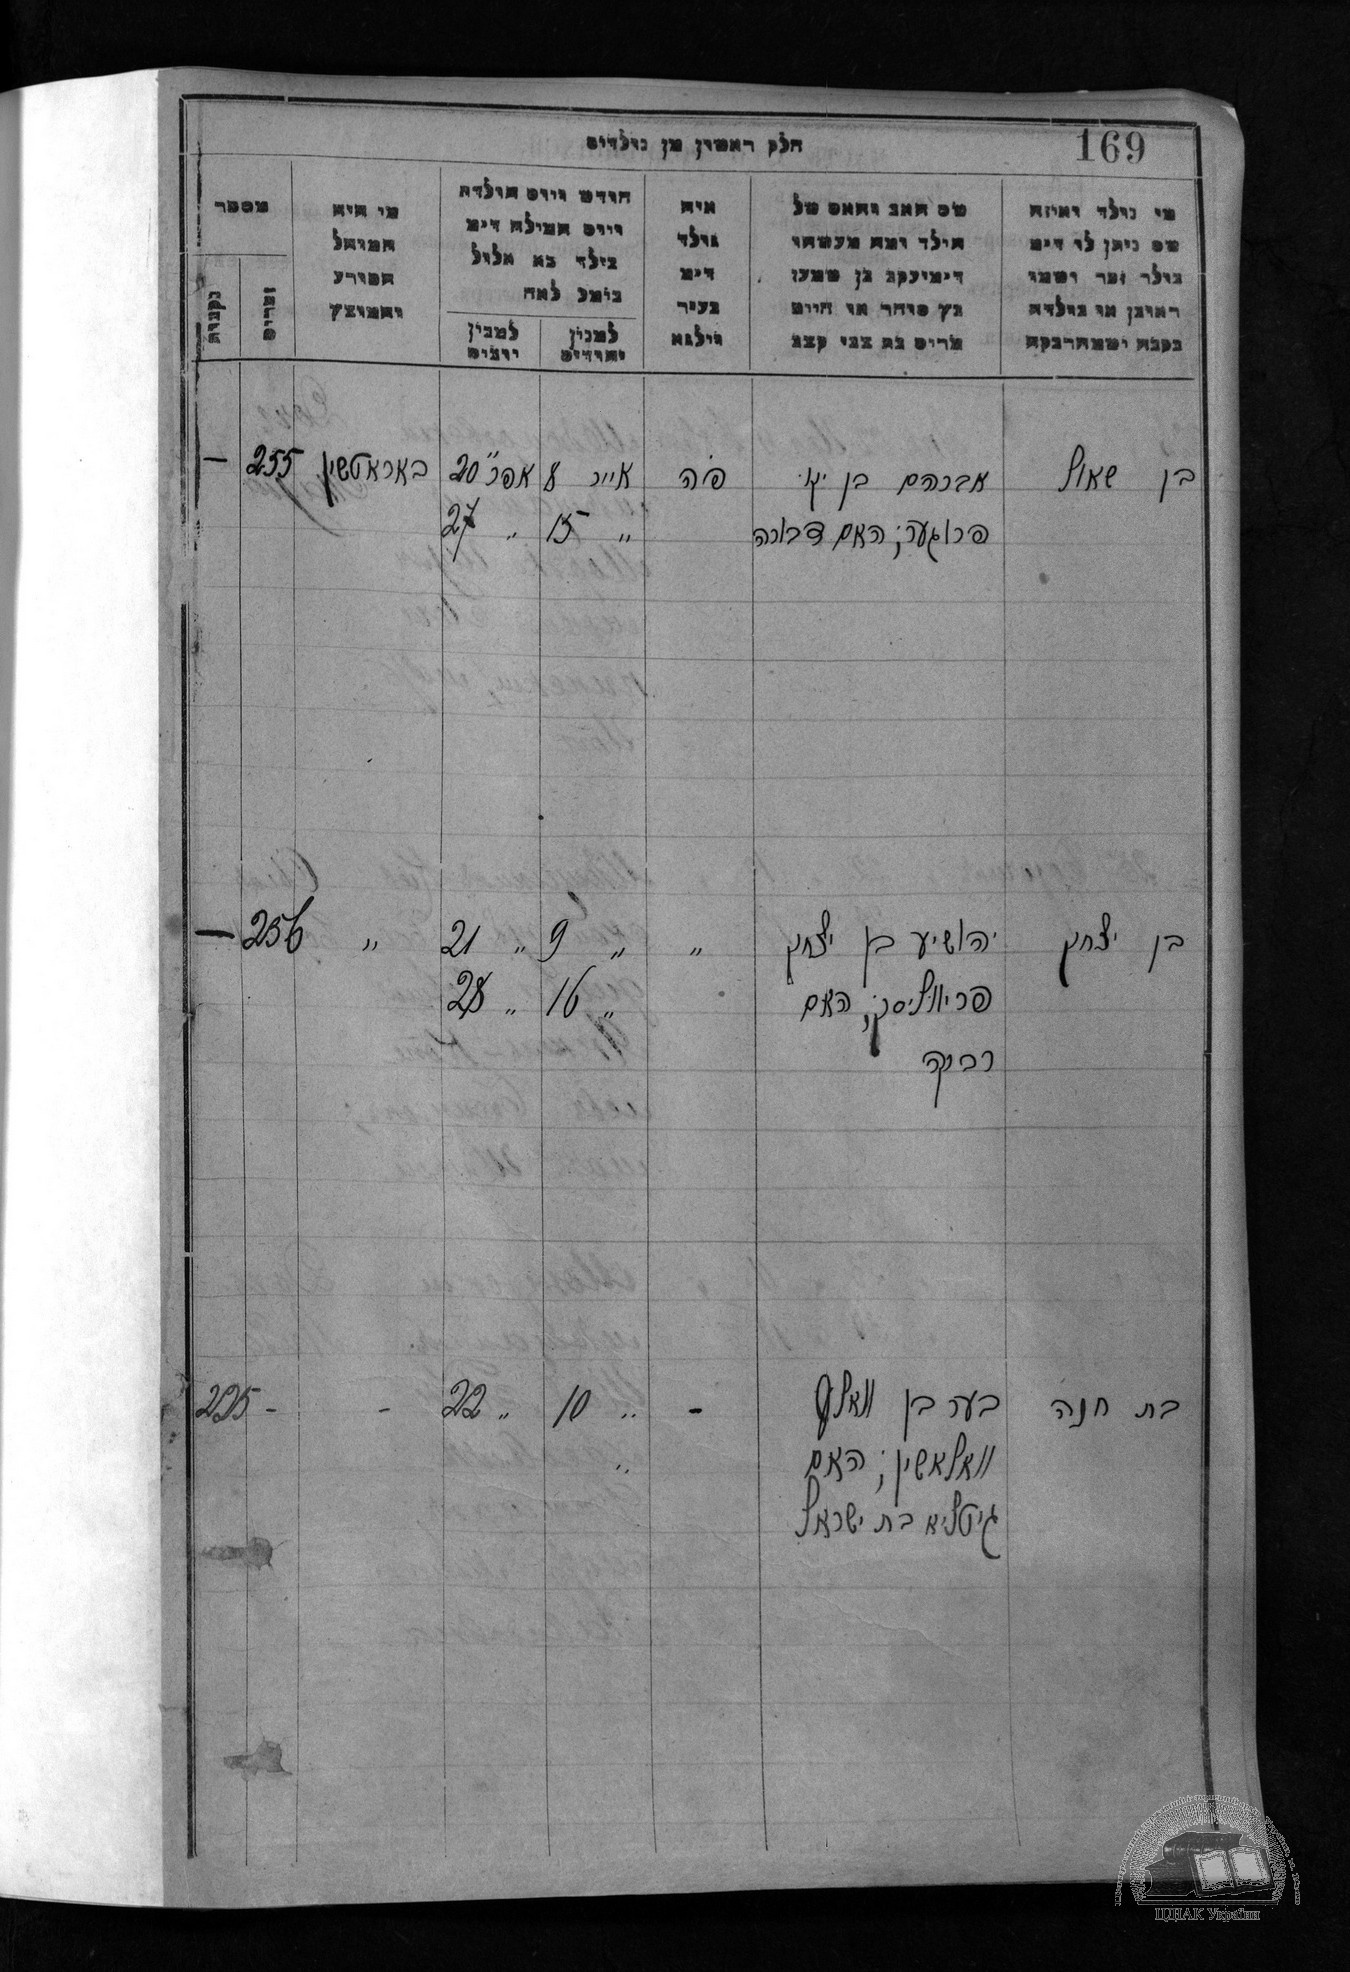 169
חלק ראשון מן נולדים
מי נולד ואיזה
שם ניתן לו דימ
בילד זכר ושמו
ראובן או בילדה
נקבה ושמה רבקה
שם האב והאם של
הילד ומה מעשהו
דימ יעקב בן שמעון
כץ סוחר או חיים
מרים בת צבי קצב
איה
נולד
דימ
בעיר
ווילנא
חודש ויום תולדה
ויום המילה דימ
בילד בא אלול
בומכ לאה
למנין
יהודים
למנין
יוונים
מי היה
המוהל
הפורע
והמוצץ
מספר
זכרים
נקבות
בן שאול
אברהם בן יצ'
פה
אייר 8
אפר" 20
באראטשין
255
—
פרוגער; האם דבורה
" 15
" 27
בן יצחק
יהושיע בן יצחק
"
" 9
" 21
"
256
—
האם
" 16
" 28
רבקה
בת חנה
בער בן וואלף
-
" 10
" 22
-
-
225
וואלאשין; האם
"
גיטליא בת ישראל
ЦДІАК України